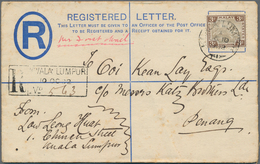 REGISTERED LETTER.
THIS LETTER MUST BE GIVEN TO AN OFFICER OF THE POST OFFICE
TO BE REGISTERED, AND A RECEIPT OBTAINED FOR IT.
R
R KUALA LUMPUR
No 563
To Goi Kean Lay Esqre
c/o Messrs Katz Brothers Ltd
Penang
From:
Low Leong Huat
1. Church Street
Kuala Lumpur